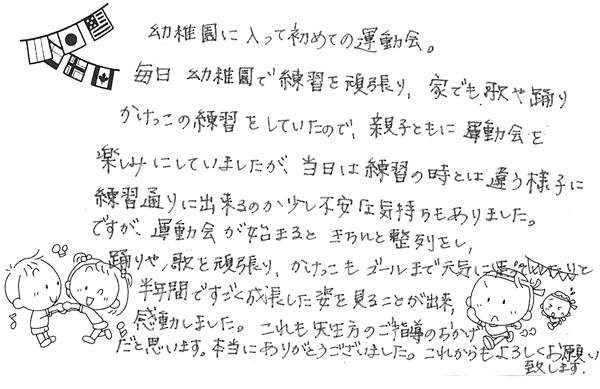 幼稚園に入って初めての運動会。
毎日 幼稚園で練習を頑張り、家でも歌や踊り
かけっこの練習をしていたので、親子ともに運動会を
楽しみにしていましたが、当日は練習の時とは違う様子に
練習通りに出来るのか少し不安な気持ちもありました。
ですが、運動会が始まると きちんと整列をし、
踊りや、歌を頑張り、かけっこもゴールまで元気に
半年間ですごく成長した姿を見ることが出来、
感動しました。これも先生方のご指導のおかげ
だと思います。本当にありがとうございました。これからもよろしくお願い
致します。